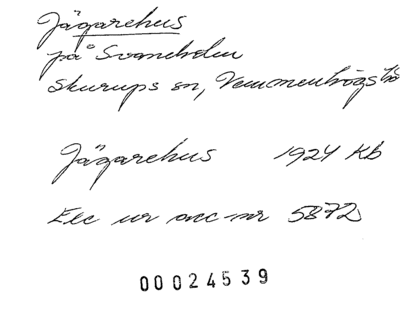 Jägarehus
på Svaneholm
Skurups sn, Vemmenhögs hd
Jägarehus 1924 Kb
Exc ur acc-nr 5872
00024539